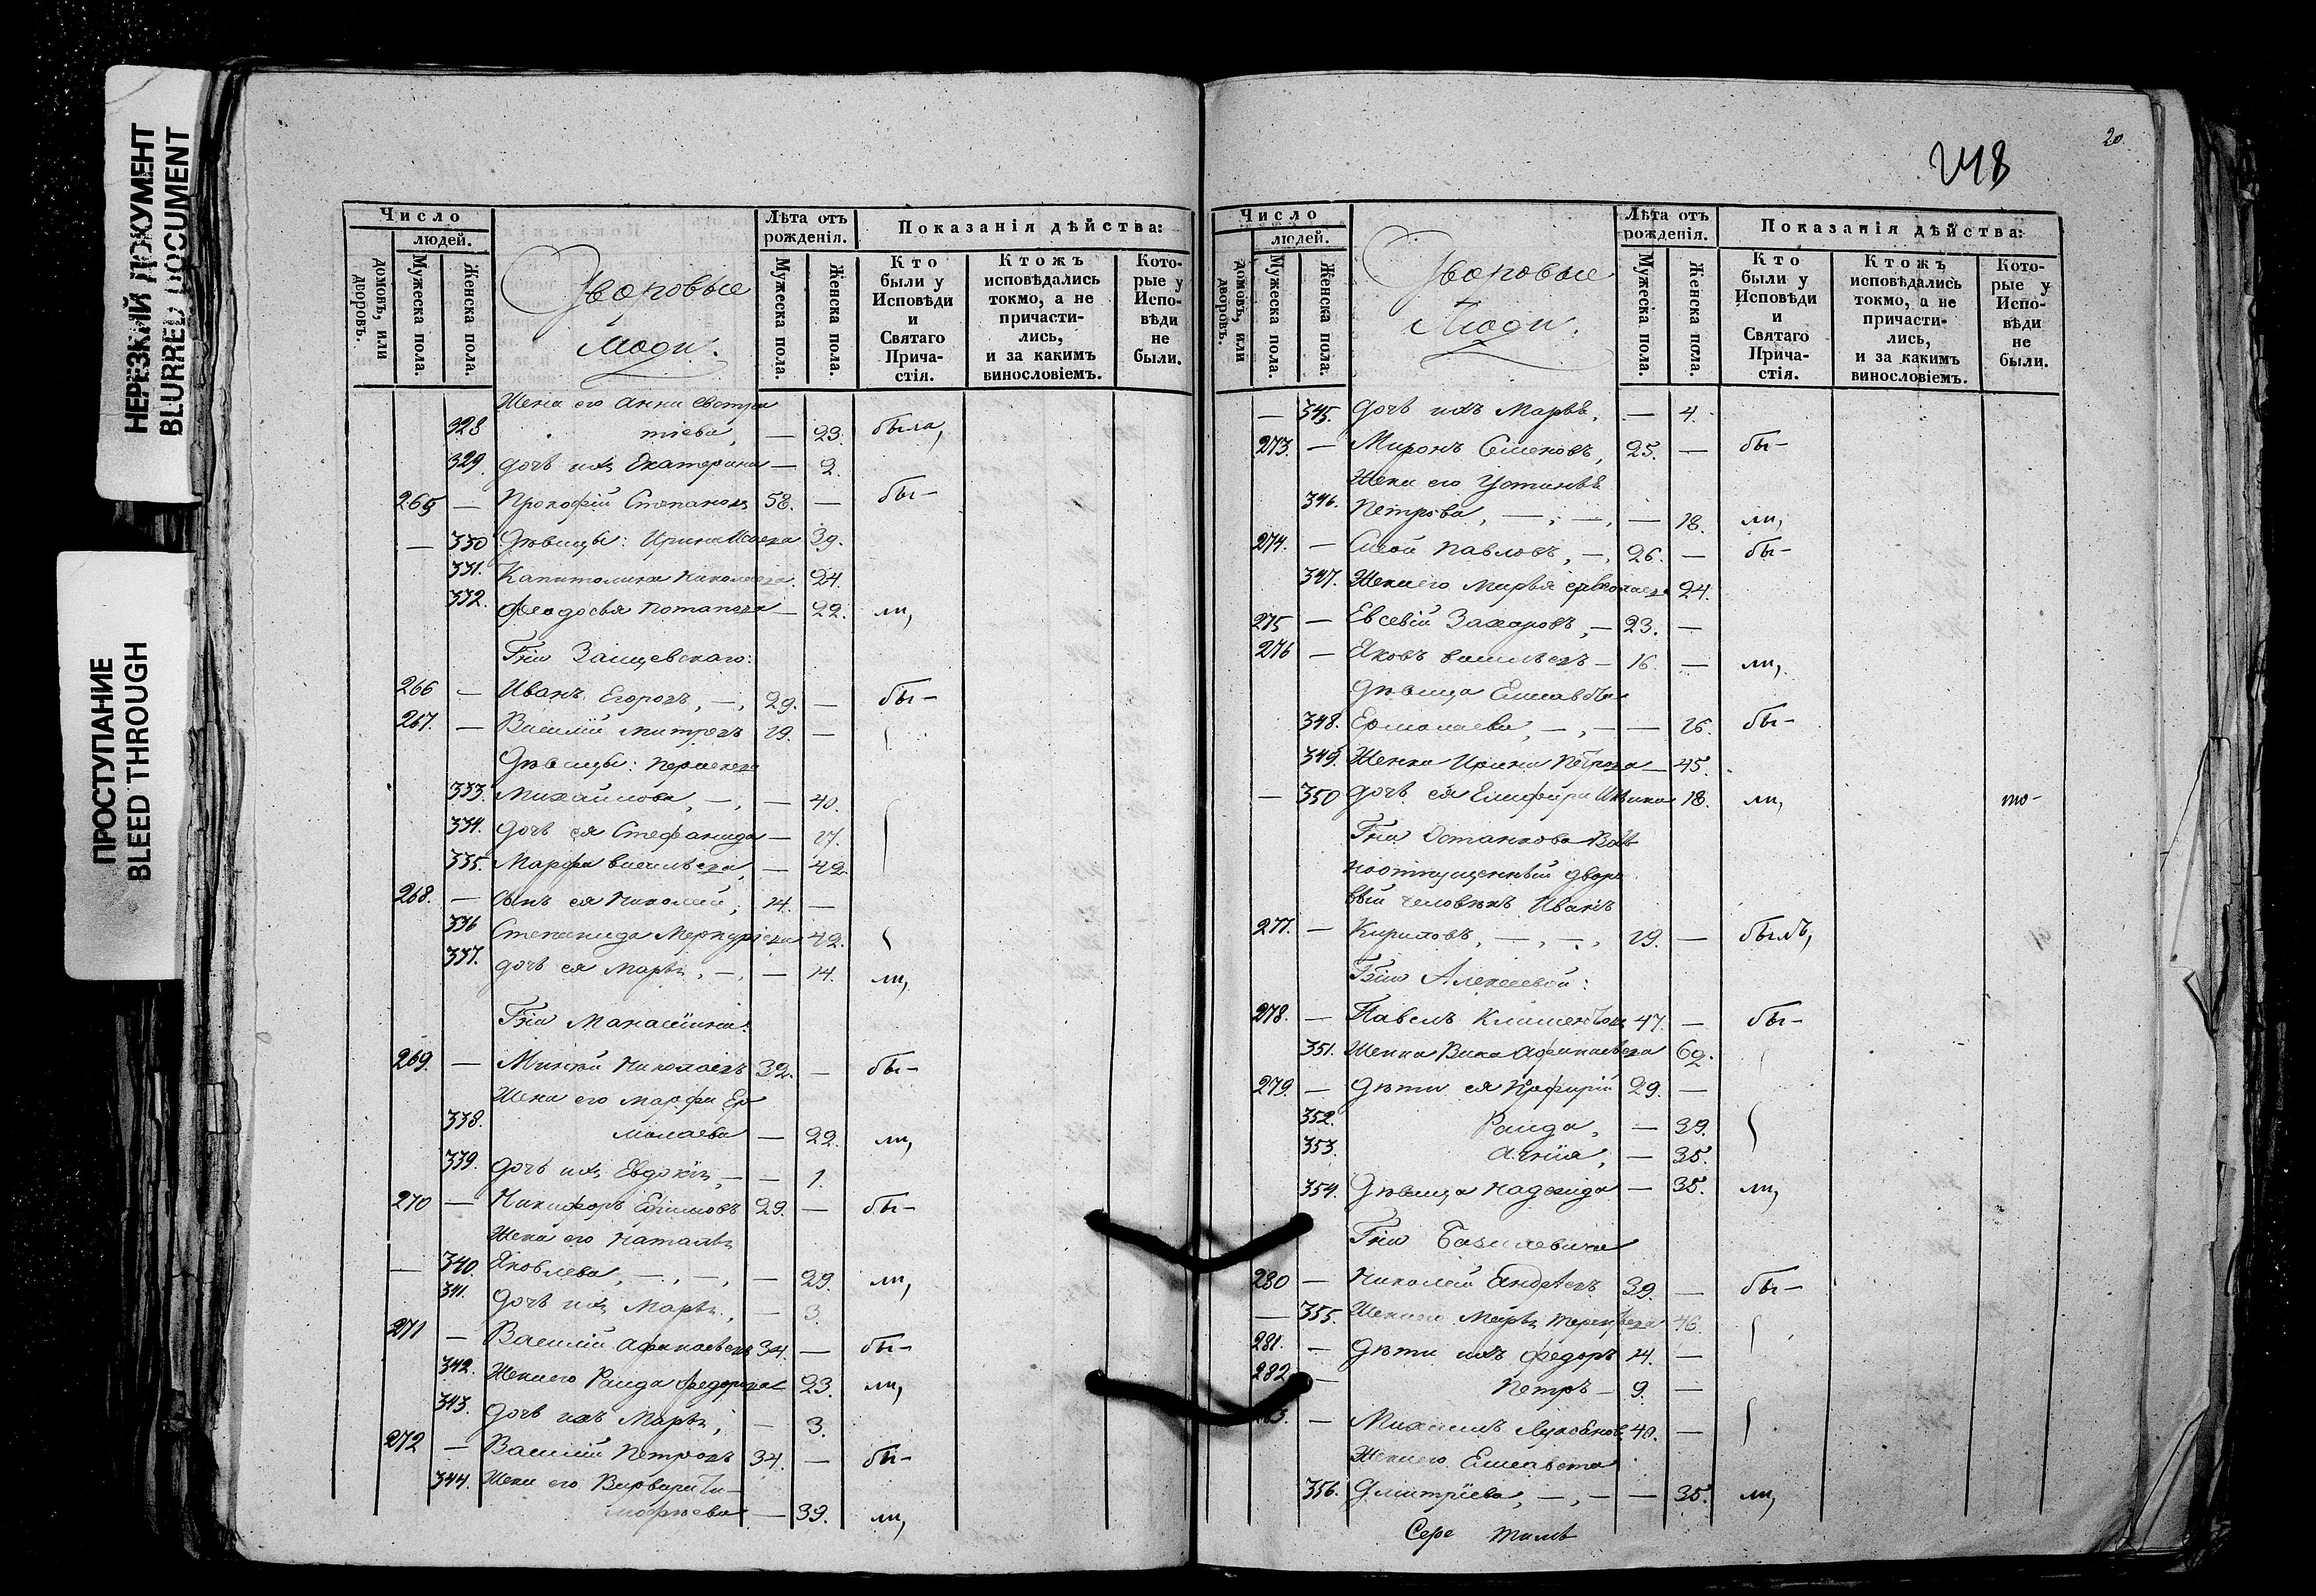 НЕРЕЗКИЙ ДОКУМЕНТ
BLURRED DOCUMENT
ПРОСТУПАНИЕ
BLEED THROUGH
Число
людей.
домовъ, или дворовъ.
Мужеска пола.
Женска пола.
Дворовые
Люди.
Лѣта отъ рожденія.
Мужеска пола.
Женска пола.
Показанія дѣйства:
Кто были у Исповѣди и Святаго Прича-стія.
Ктожъ исповѣдались токмо, а не причасти-лись, и за какимъ винословіемъ.
Кото-рые у Испо-вѣди не были.
Жена его Анна Евстра
328 тіева, — 23. была,
329. дочь ихъ Екатерина — 2.
265 — Прокофій Степановъ 58. — бы-
— 330 Дѣвицы: Ирина 39.
331. Капитолина Николаева 24.
332. Феодосья Потапова — 22. ли,
Гна
266 — Иванъ Егоровъ, —, 29. — бы-
267. — Василій Митровъ 19. —
Дѣвицы:
333. Михайлова, —, — 40.
334. дочь ея Стефанида — 17.
335. Марфа Васильева, — 42.
268. — сынъ ея Николай, 14. —
336 Степанида Меркурьева 42.
337. дочь ея Марья, —, — 14. ли,
Гна
269. — Николаевъ 32. — бы-
Жена его Марфа Ер
338. молаева — 22. ли,
339. дочь ихъ Евдокія, — — 1.
270 — Никифоръ Ефимовъ 29. — бы-
Жена его Наталья
— 340. Яковлева, —, —, — 29. ли,
341. дочь ихъ Марья, — 3.
271 — Василій Афанасьевъ 34. — бы-
342. Жена его Раида Федорова 23. ли,
343. дочь ихъ Марья, — 3.
272 — Василій Петровъ 34. — бы-
344. Жена его Варвара Ти-
мофѣева — 39. ли,
20.
248
Число
людей.
домовъ, или дворовъ.
Мужеска пола.
Женска пола.
Дворовые
Люди.
Лѣта отъ рожденія.
Мужеска пола.
Женска пола.
Показанія дѣйства:
Кто были у Исповѣди и Святаго Прича-стія.
Ктожъ исповѣдались токмо, а не причасти-лись, и за какимъ винословіемъ.
Кото-рые у Испо-вѣди не были.
— 345. дочь ихъ Марья, — 4.
273. — Миронъ Семеновъ, 25. — бы-
Жена его Устинья
346. Петрова, —, —, — 18. ли,
274. — Павловъ, —, 26. — бы-
347. Жена его Марья 24.
275 — Евсевій Захаровъ, — 23. —
276 — Яковъ Васильевъ — 16. — ли,
Дѣвица Елисавета
348. Ермолаева, —, — — 26. бы-
349. Женка Ирина Петрова — 45.
— 350 дочь ея 18. ли, то-
Гна Останкова Воль
ноотпущенный дворо
вый человѣкъ Иванъ
277. — Кириловъ, —, —, 19. — былъ,
Гжи Алексеевой:
278. — Павелъ Климентовъ 47. — бы-
351. Женка Афанасьева 62.
279. — Дѣти ея Порфирій 29. —
352. Раида, — 39.
353. — 35.
354. Дѣвица Надежда — 35. ли,
Гна Базилевича
280 — Николай Андреевъ 39. — бы-
— 355. Жена его Марья Терентьева 46.
281. — Дѣти ихъ Федоръ 14. —
282 — Петръ — 9. —
— Михаилъ 40. —
Жена его Елисавета
356. Дмитріева, —, — — 35. ли,